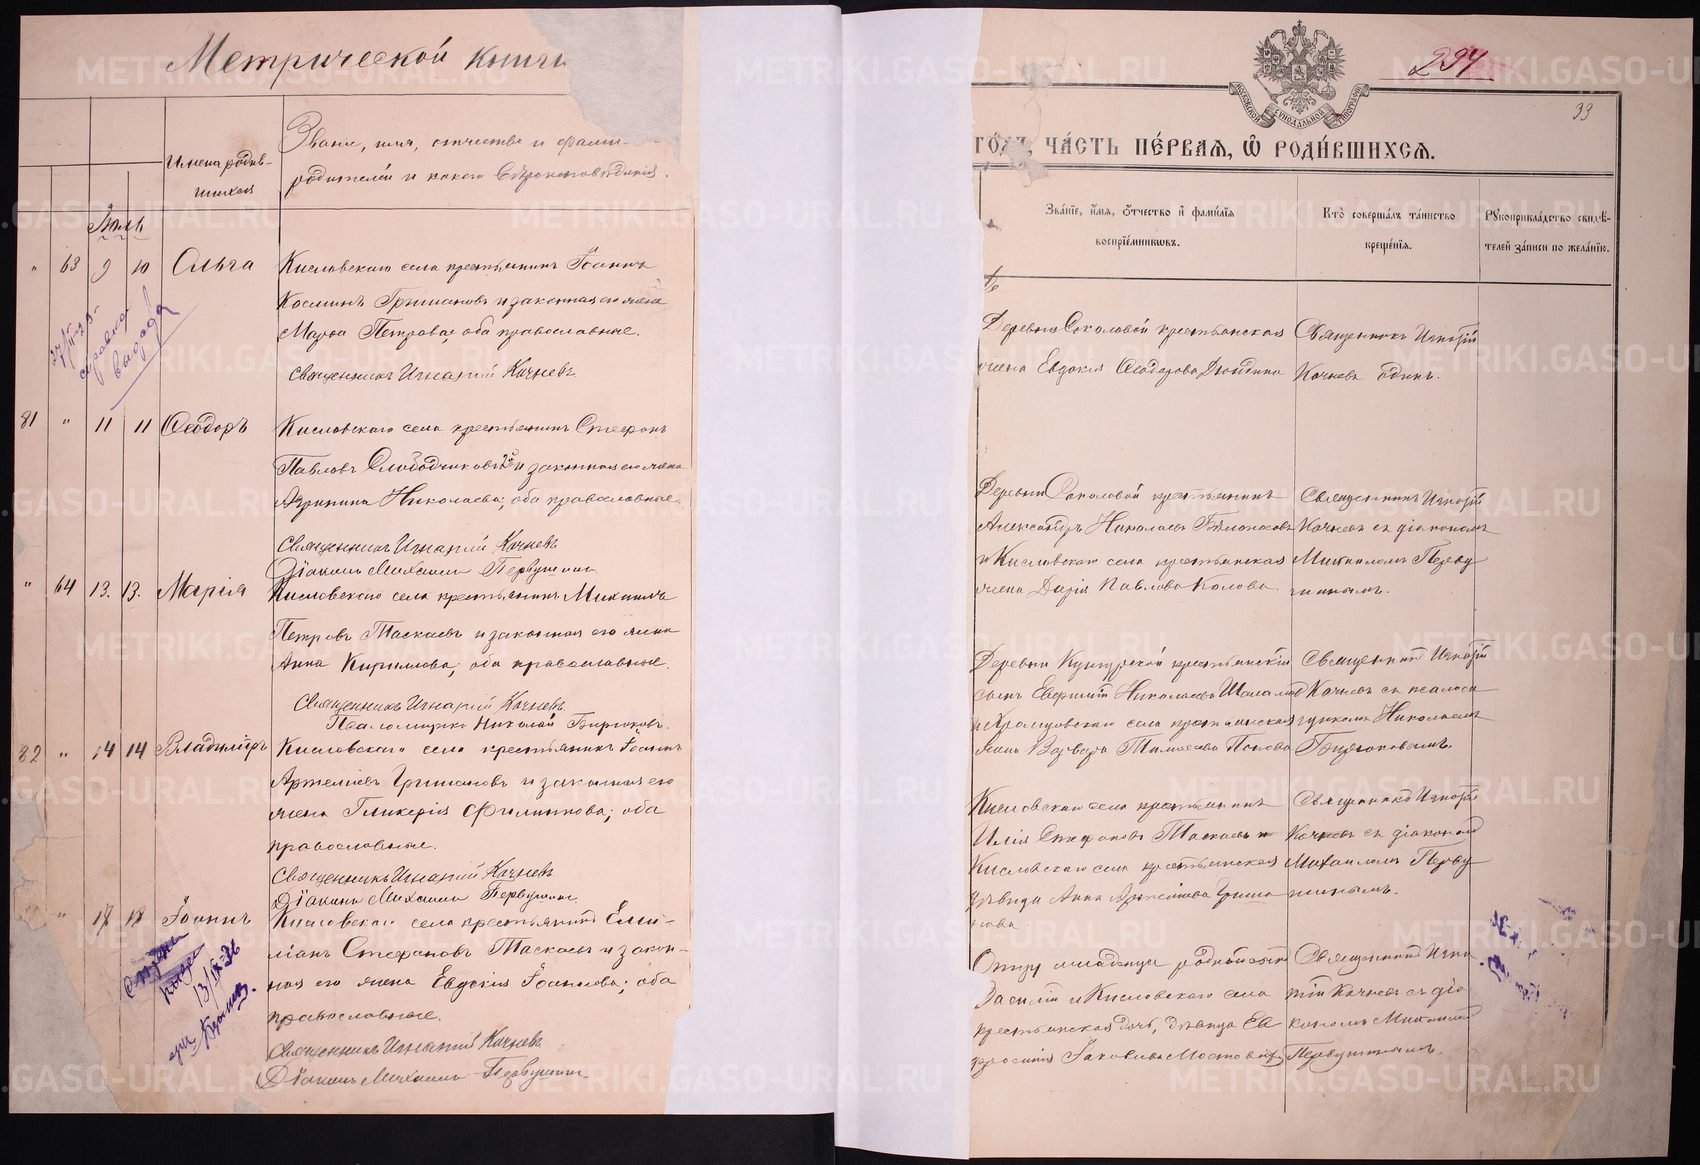 Метрической книги
Имена родив-
шихся
Званіе, имя, отчество и фами-
родителей и какого вѣроисповѣданія.
Іюль
„ 63 9 10 Ольга
Кисловскаго села крестьянинъ Іоаннъ
Косминъ Гришановъ и законная его жена
Марѳа Петрова, оба православные.
Священникъ Игнатій Кочневъ
справка
выдана
81 „ 11 11 Ѳеодоръ
Кисловскаго села крестьянинъ Стефанъ
Павловъ Слободчиковъ и законная его жена
Агрипина Николаева; оба православные.
Священникъ Игнатій Кочневъ
Діаконъ Михаилъ Первушинъ
„ 64 13. 13. Марія
Кисловскаго села крестьянинъ Михаилъ
Петровъ Таскаевъ и законная его жена
Анна Кирилова; оба православные.
Священникъ Игнатій Кочневъ
Псаломщикъ Николай Бирюковъ.
82 „ 14 14 Владиміръ
Кисловскаго села крестьянинъ Іоаннъ
Артеміевъ Гришановъ и законная его
жена Гликерія Филиппова; оба
православные.
Священникъ Игнатій Кочневъ
Діаконъ Михаилъ Первушинъ.
„ 18 18 Іоаннъ
Кисловскаго села крестьянинъ Еми-
ліанъ Стефановъ Таскаевъ и закон-
ная его жена Евдокія Іоаннова; оба
православные.
Священникъ Игнатій Кочневъ
Діаконъ Михаилъ Первушинъ
294
33
МОСКОВСКОЙ СѴНОДАЛЬНОЙ ТИПОГРАФІИ
ГОДЪ, ЧА́СТЬ ПЕ́РВАЯ, Ѽ РОДИ́ВШИХСЯ.
Зва́нїе, и́мя, ѻ́тчество и҆ фами́лїя
воспрїе́мниковъ.
Кто̀ соверша́лъ та́инство
креще́нїя.
Рꙋкоприкла́дство свидѣ́-
телей за́писи по жела́нїю.
Деревни Соколовой крестьянская
жена Евдокія Ѳеодорова Дюндина
Священникъ Игнатій
Кочневъ одинъ.
Деревни Соколовой крестьянинъ
Александръ Николаевъ
и Кисловскаго села крестьянская
жена Дарія Павлова
Священникъ Игнатій
Кочневъ съ діакономъ
Михаиломъ Перву
шинымъ.
Деревни Кунгурской крестьянскій
сынъ Евфимій Николаевъ
села крестьянская
жена Варвара Попова
Священникъ Игнатій
Кочневъ съ псалом
щикомъ Николаемъ
Бирюковымъ.
Кисловскаго села крестьянинъ
Илія Стефановъ Таскаевъ и
Кисловскаго села крестьянская
дѣвица Анна Артеміева Гриша
нова.
Священникъ Игнатій
Кочневъ съ діакономъ
Михаиломъ Перву
шинымъ.
Отцу младенца родной братъ
Василій и Кисловскаго села
крестьянская дочь, дѣвица Ев
фросинія Іаковлева
Священникъ Игна
тій Кочневъ съ діа
кономъ Михаиломъ
Первушинымъ.
METRIKI.GASO-URAL.RU